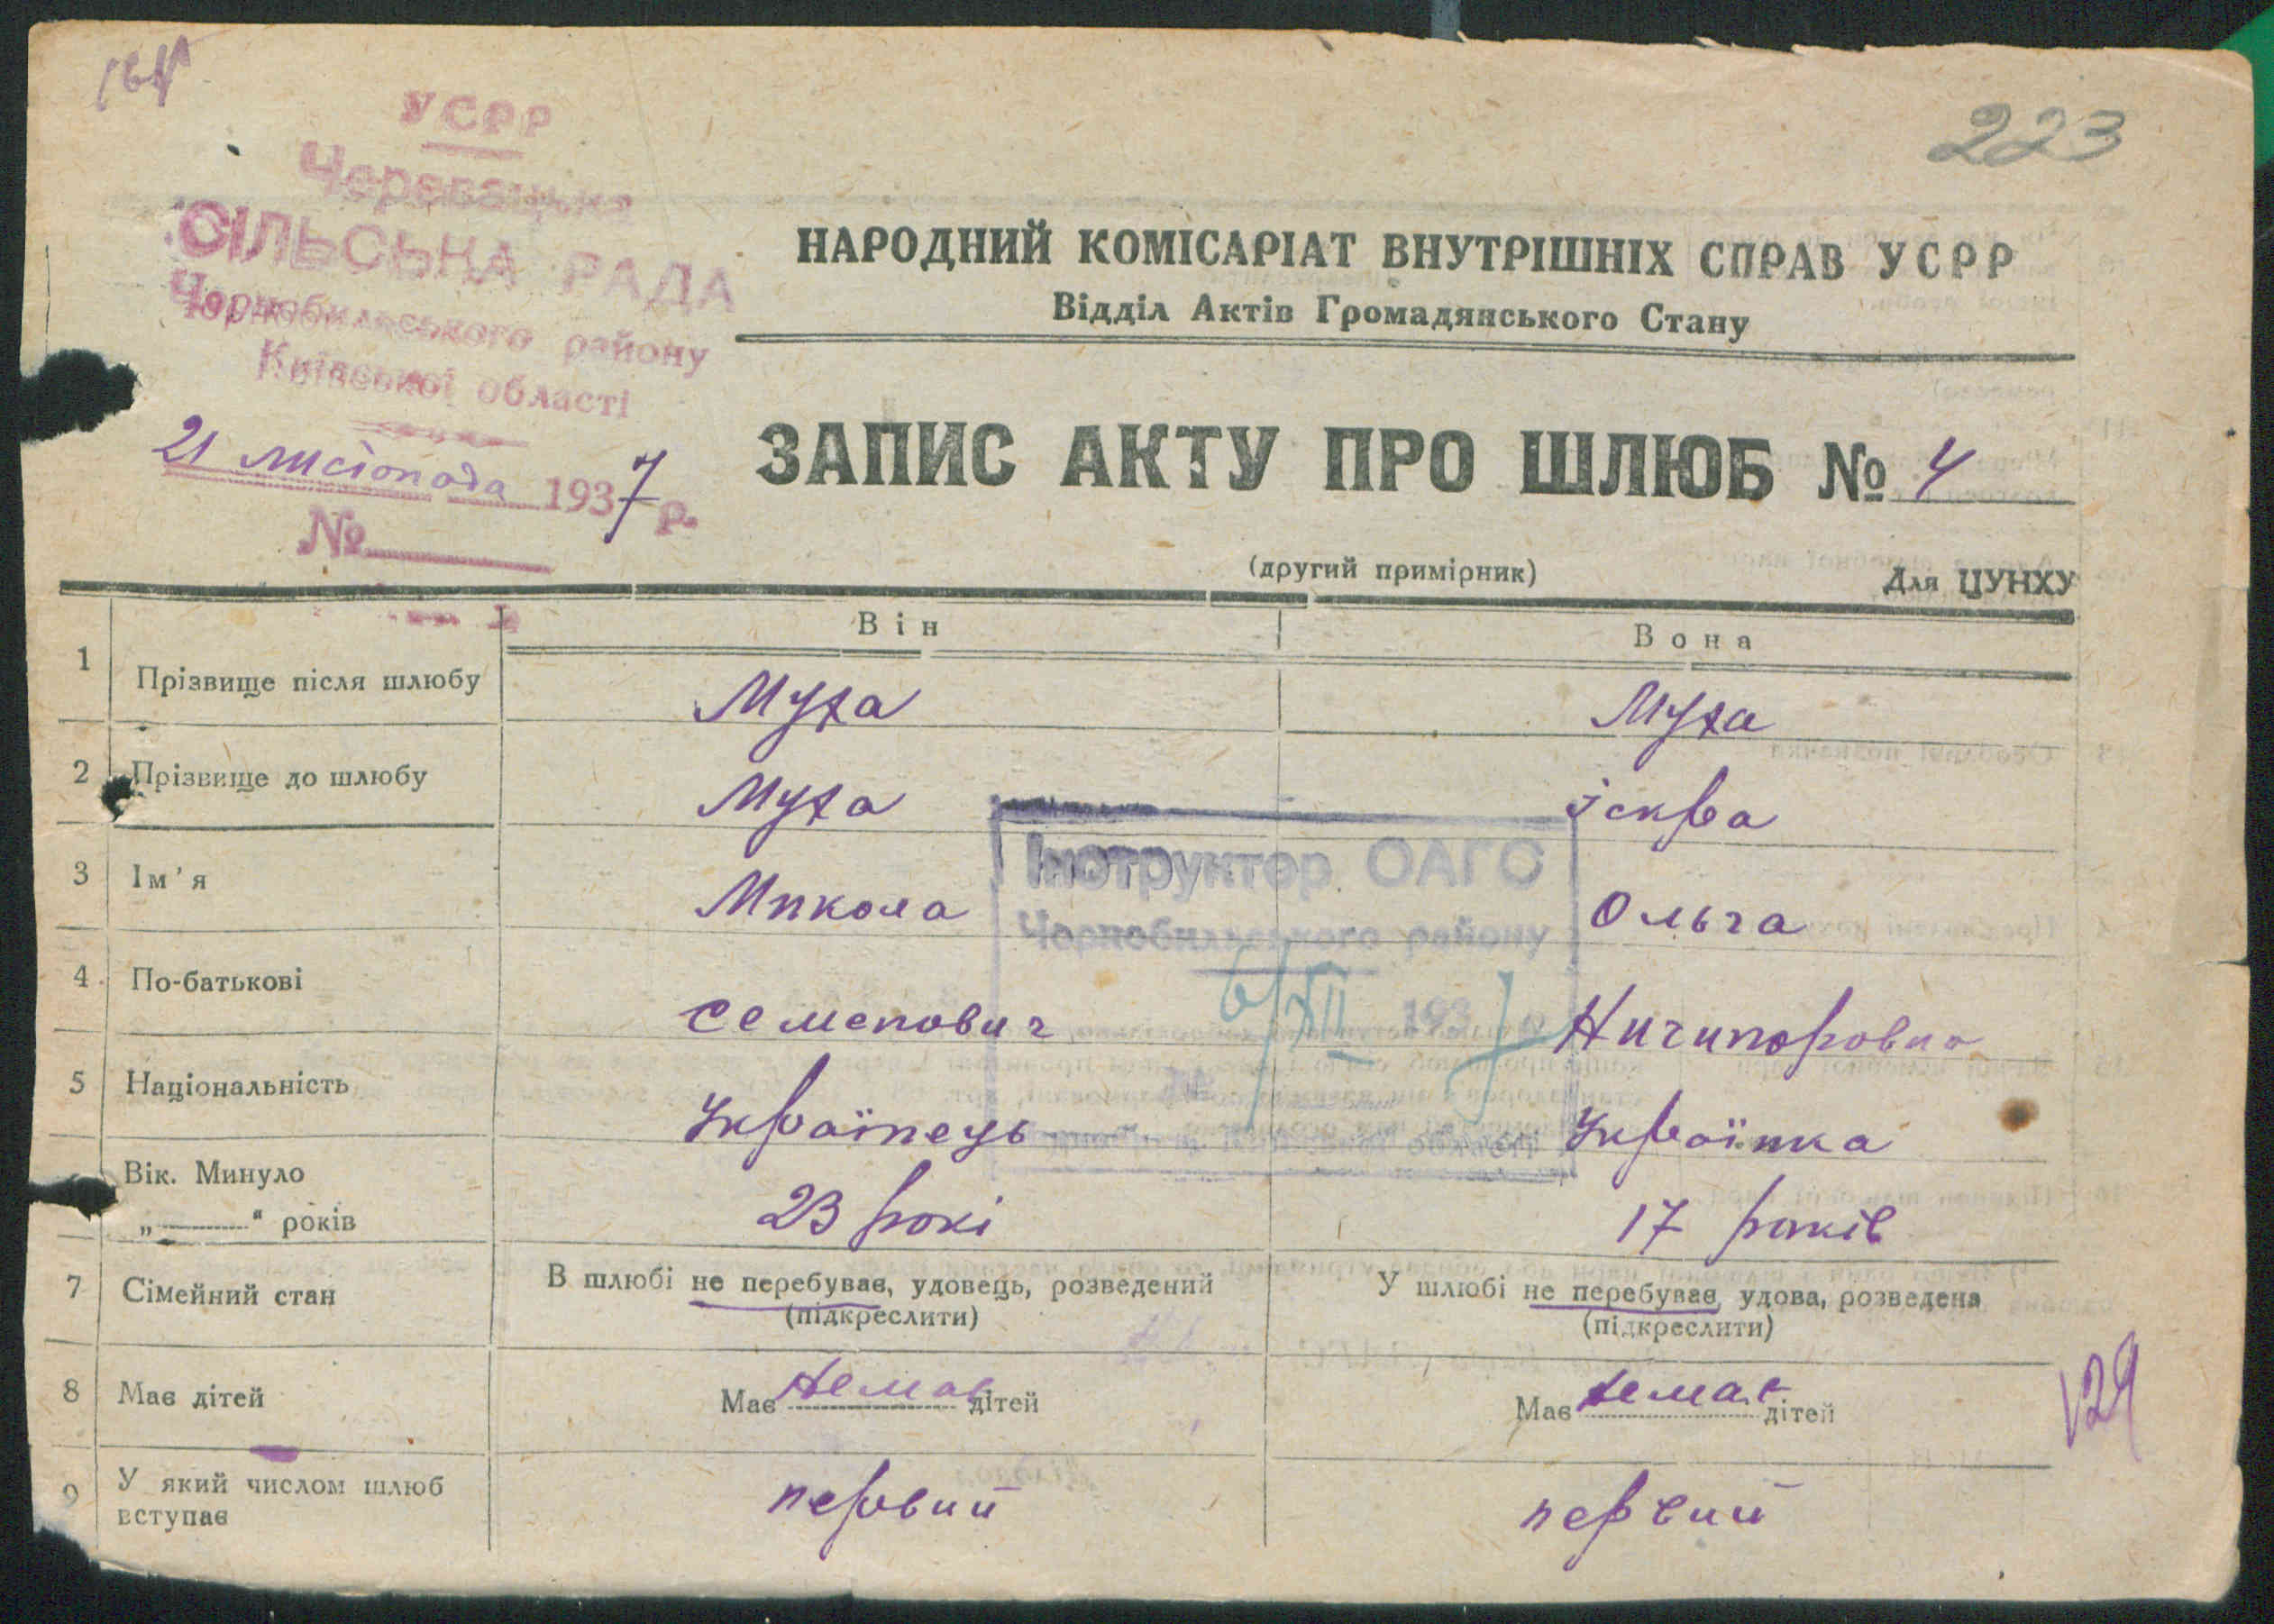 223
УСРР
Черевацька
СІЛЬСЬКА РАДА
Чорнобильського району
Київської області
21 листопада 1937 р.
№
НАРОДНИЙ КОМІСАРІАТ ВНУТРІШНІХ СПРАВ УСРР
Відділ Актів Громадянського Стану
ЗАПИС АКТУ ПРО ШЛЮБ № 4
(другий примірник)
Для ЦУНХУ
Він Вона
1 Прізвище після шлюбу Муха Муха
2 Прізвище до шлюбу Муха іскра
3 Ім'я Микола Ольга
4 По-батькові Семенович Ничипоровна
5 Національність Українець Українка
Вік. Минуло
„ “ років 23 рокі 17 років
7 Сімейний стан В шлюбі не перебував, удовець, розведений У шлюбі не перебував, удова, розведена
(підкреслити) (підкреслити)
8 Має дітей Має немає дітей Має немає дітей
9 У який числом шлюб вступає первий первий
Інструктор ОАГС
Чорнобильського району
6/XII 1937 р
129